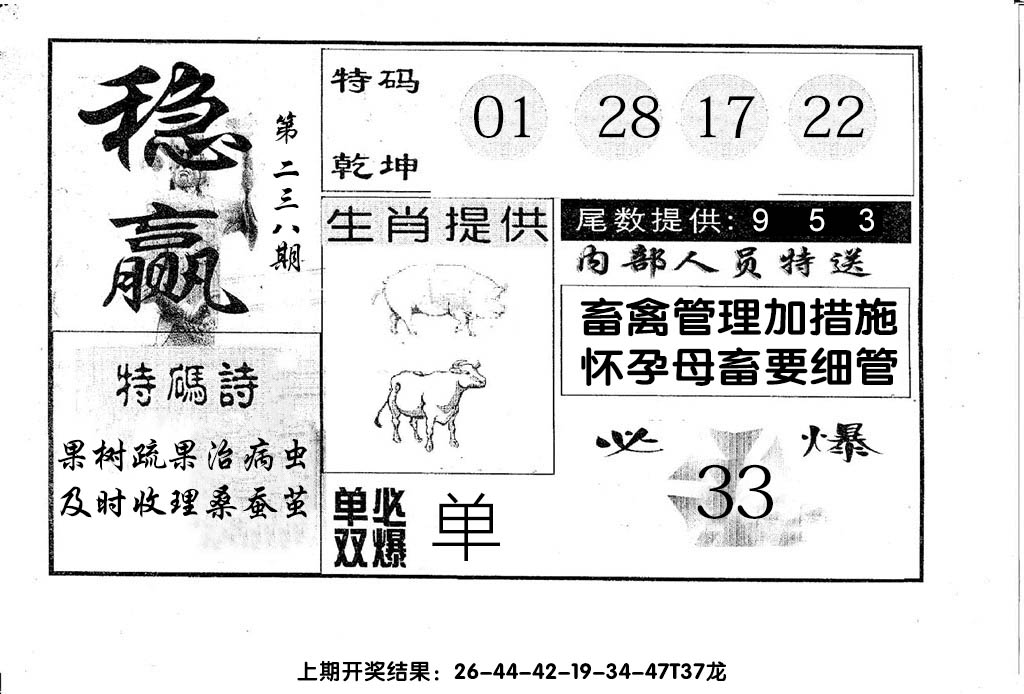 稳赢
第二三八期
特码
乾坤
01 28 17 22
生肖提供
尾数提供: 9 5 3
内部人员特送
畜禽管理加措施
怀孕母畜要细管
特碼詩
果树疏果治病虫
及时收理桑蚕茧
单双
必爆
单
必爆
33
上期开奖结果：26-44-42-19-34-47T37龙